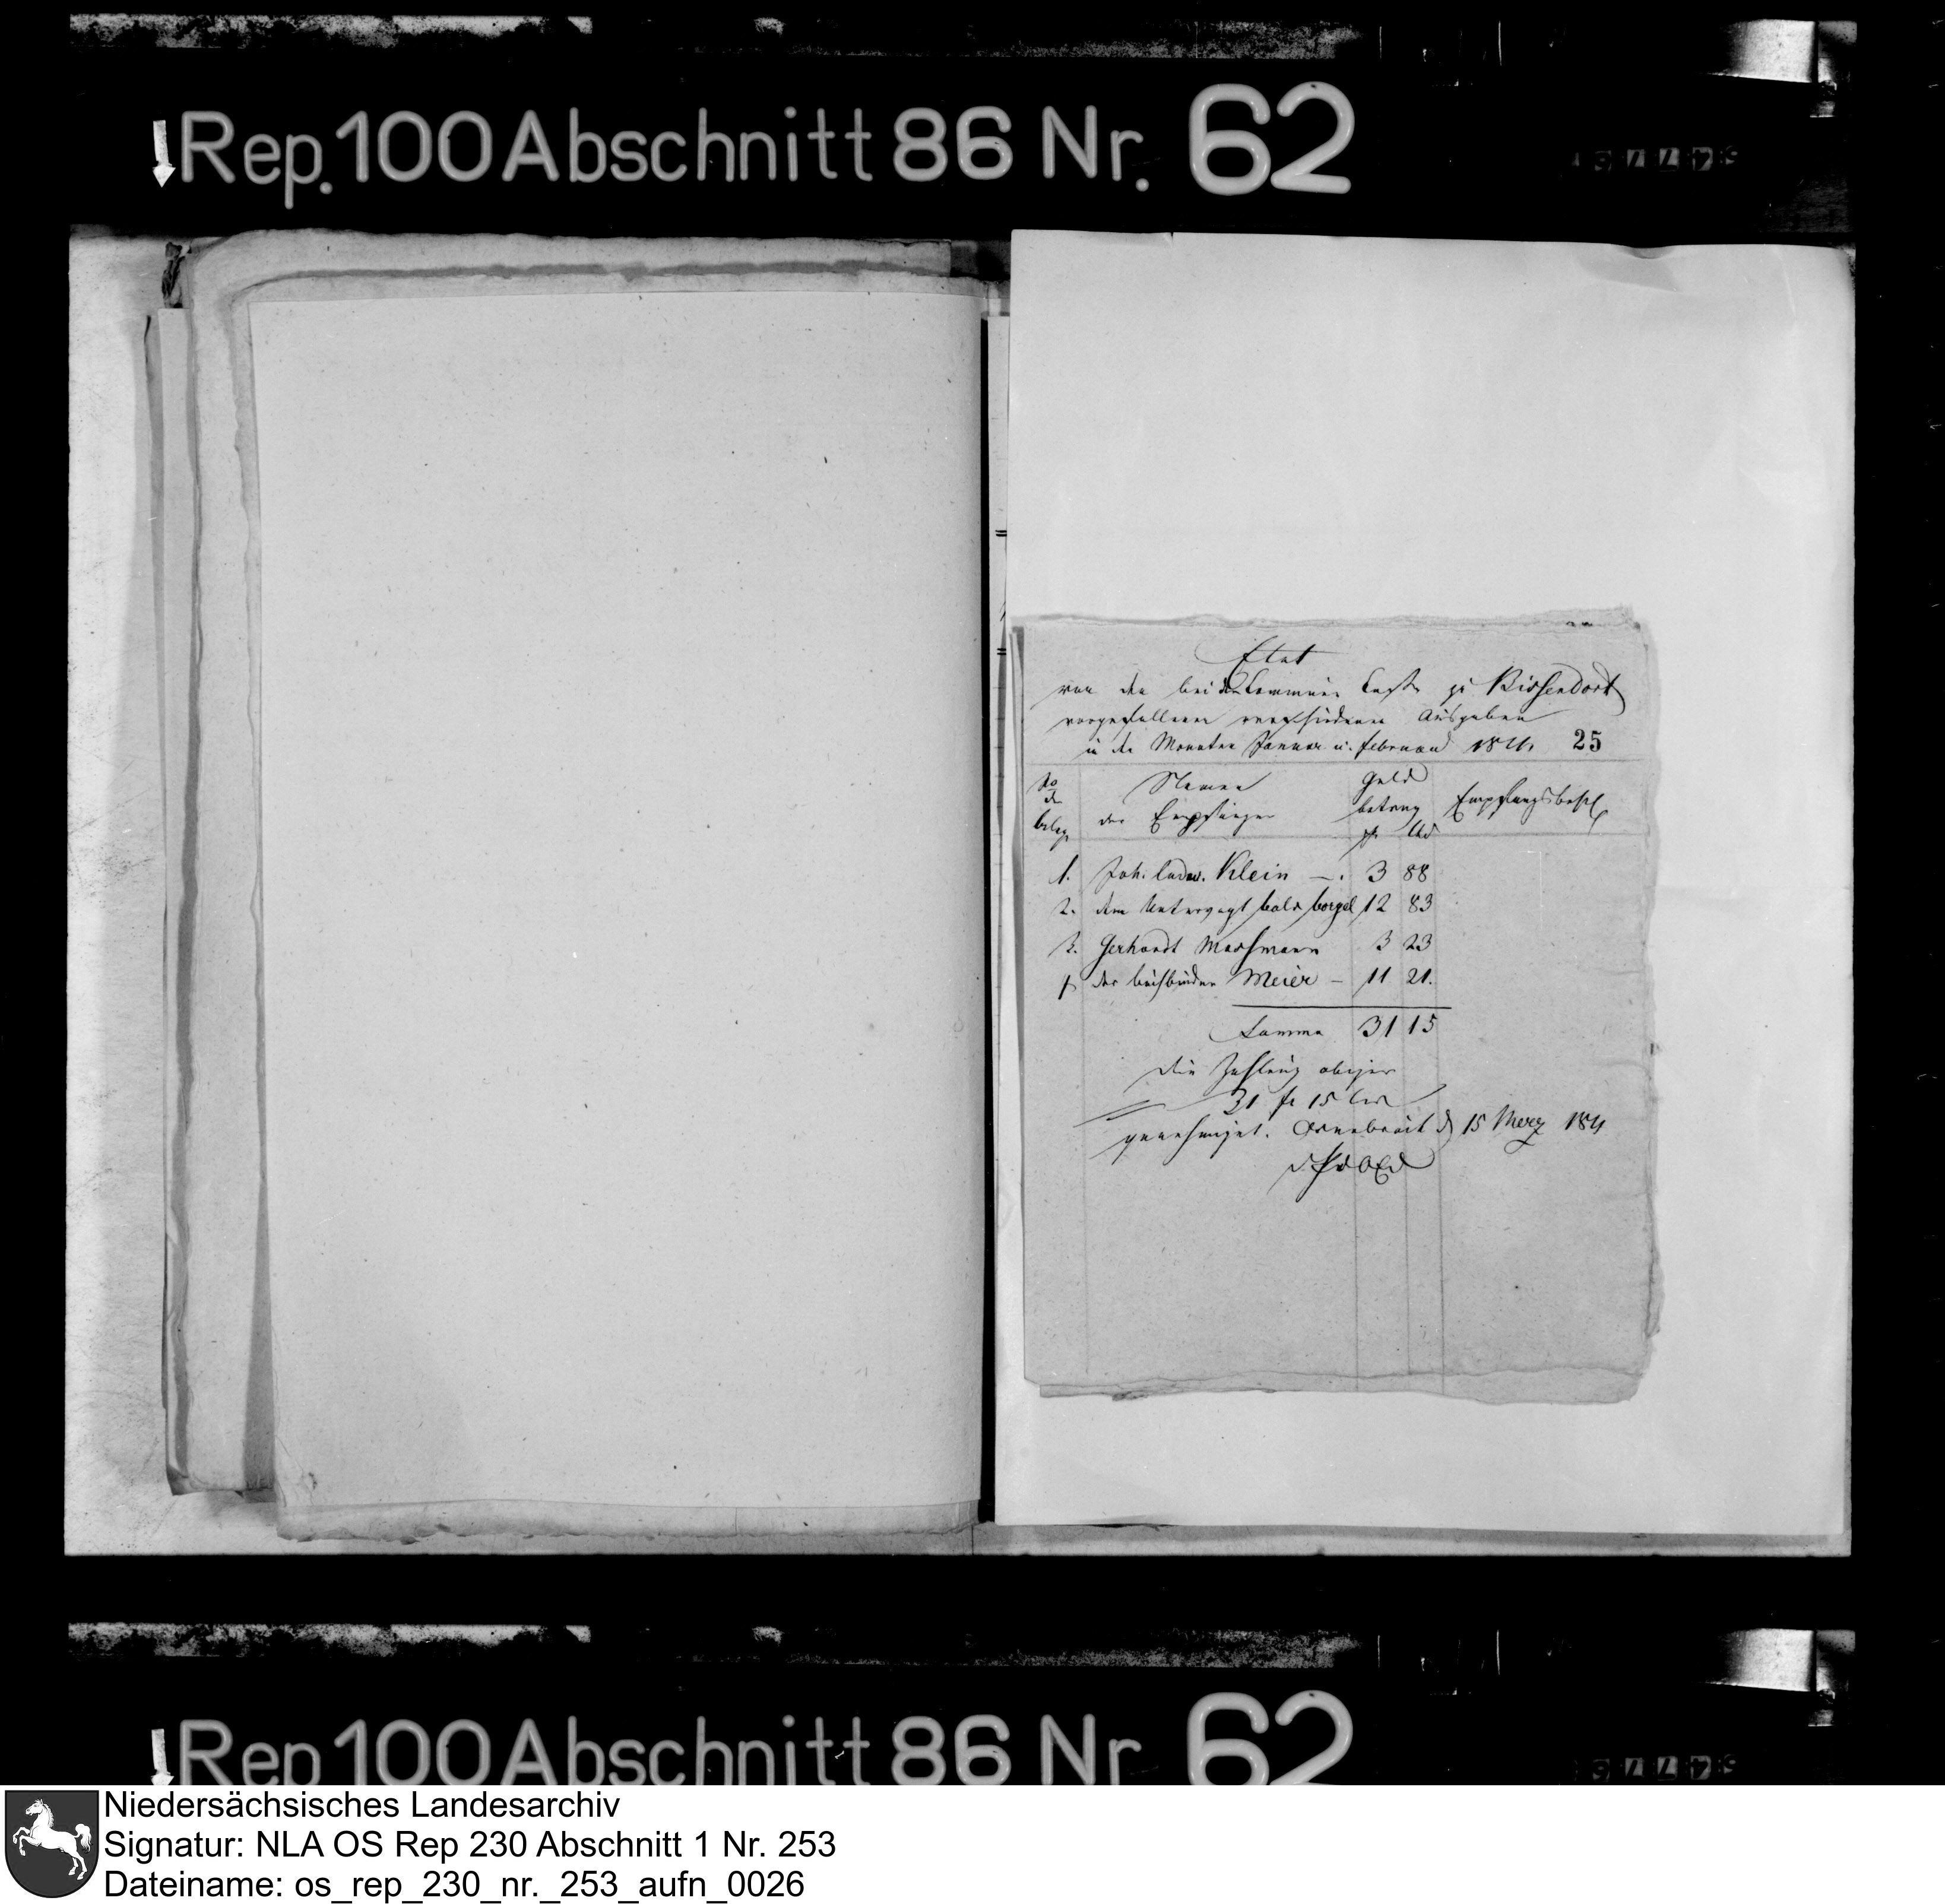 Rep. 100 Abschnitt 86 Nr. 62
Etat
von den bei der Commun Casse zu Bissendorf
vorgefallenen verschiedenen Ausgaben
in den Monaten Januar u. Februar 1811. 25
No
der
beleg
Namen
der Empfänger
Geld
betrag
fr Cts
Empfangsbesch
1. Joh. Ludw. Klein — . 3 88
2. dem Untervogt 12 83
3. Gerhardt Massmann 3 23
4 der buchbinder Meier — 11 21.
Summa 31 15
Die Zahlung obiger
31 fr 15 Cts
genehmiget. Osnabrück d 15 Merz 1811
Rep 100 Abschnitt 86 Nr 62
Niedersächsisches Landesarchiv
Signatur: NLA OS Rep 230 Abschnitt 1 Nr. 253
Dateiname: os_rep_230_nr._253_aufn_0026